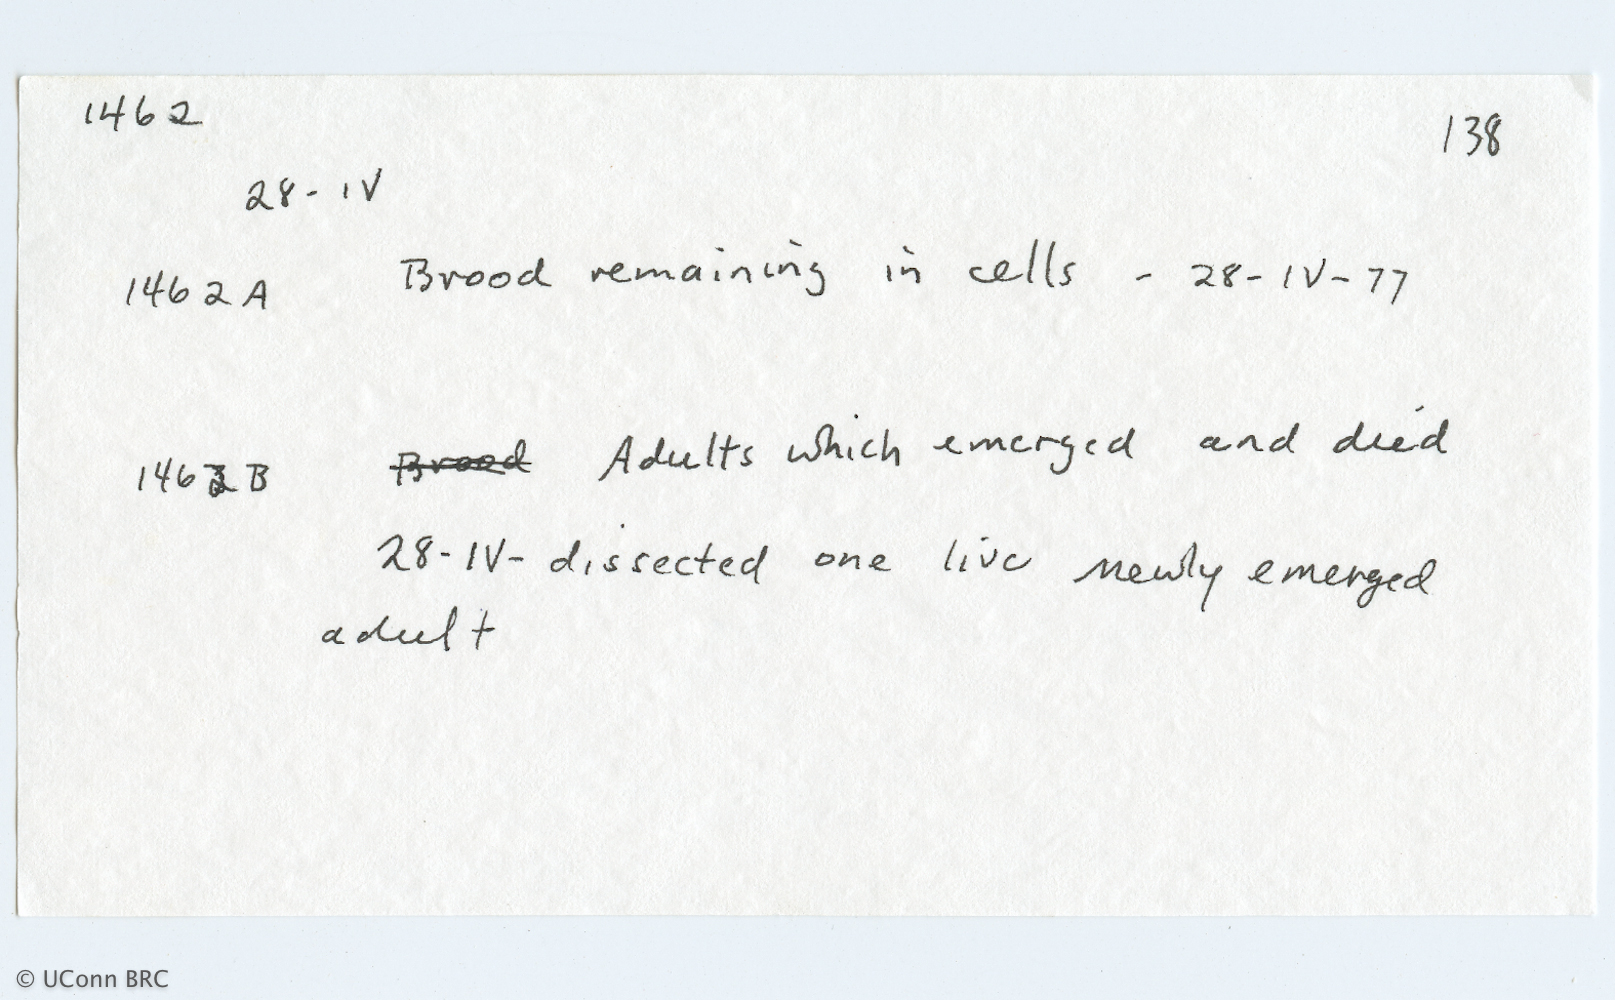 1462
138
28-IV
1462A Brood remaining in cells - 28-IV-77
1462B Brood Adults which emerged and died
28-IV- dissected one live newly emerged
adult
© UConn BRC